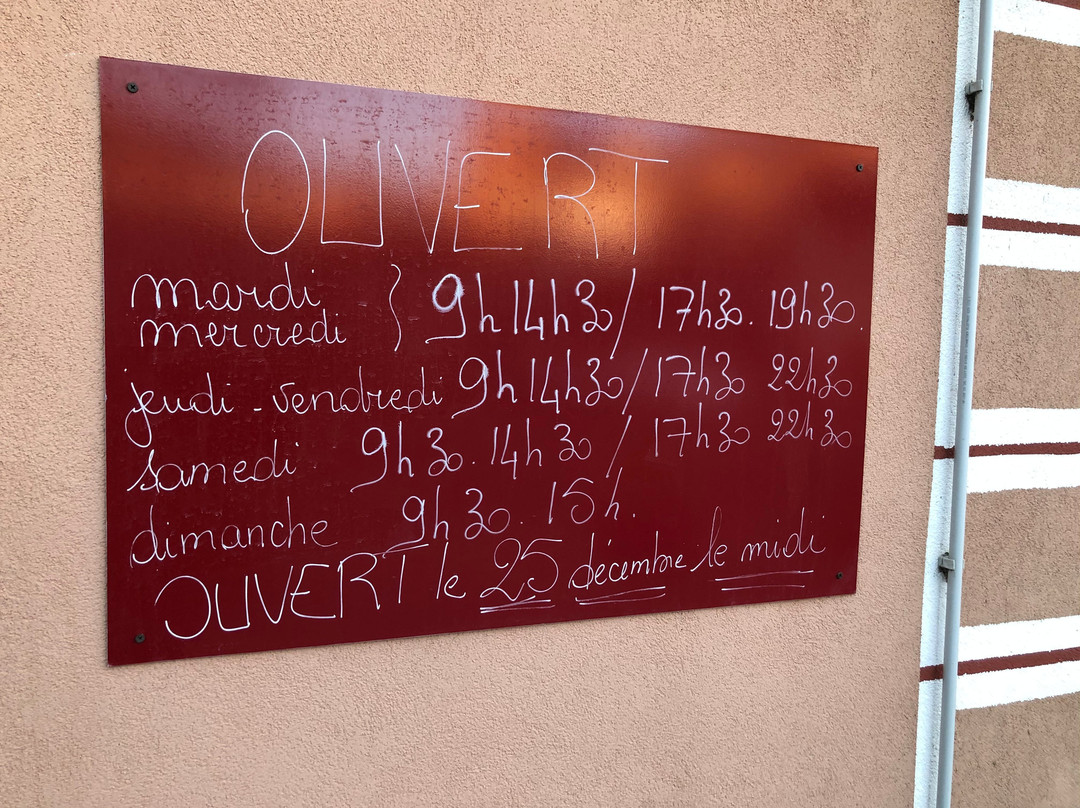 OUVERT
mardi
mercredi } 9h 14h30 / 17h30. 19h30.
jeudi - vendredi 9h 14h30 / 17h30 22h30
samedi 9h30. 14h30 / 17h30 22h30
dimanche 9h30. 15h.
OUVERT le 25 décembre le midi